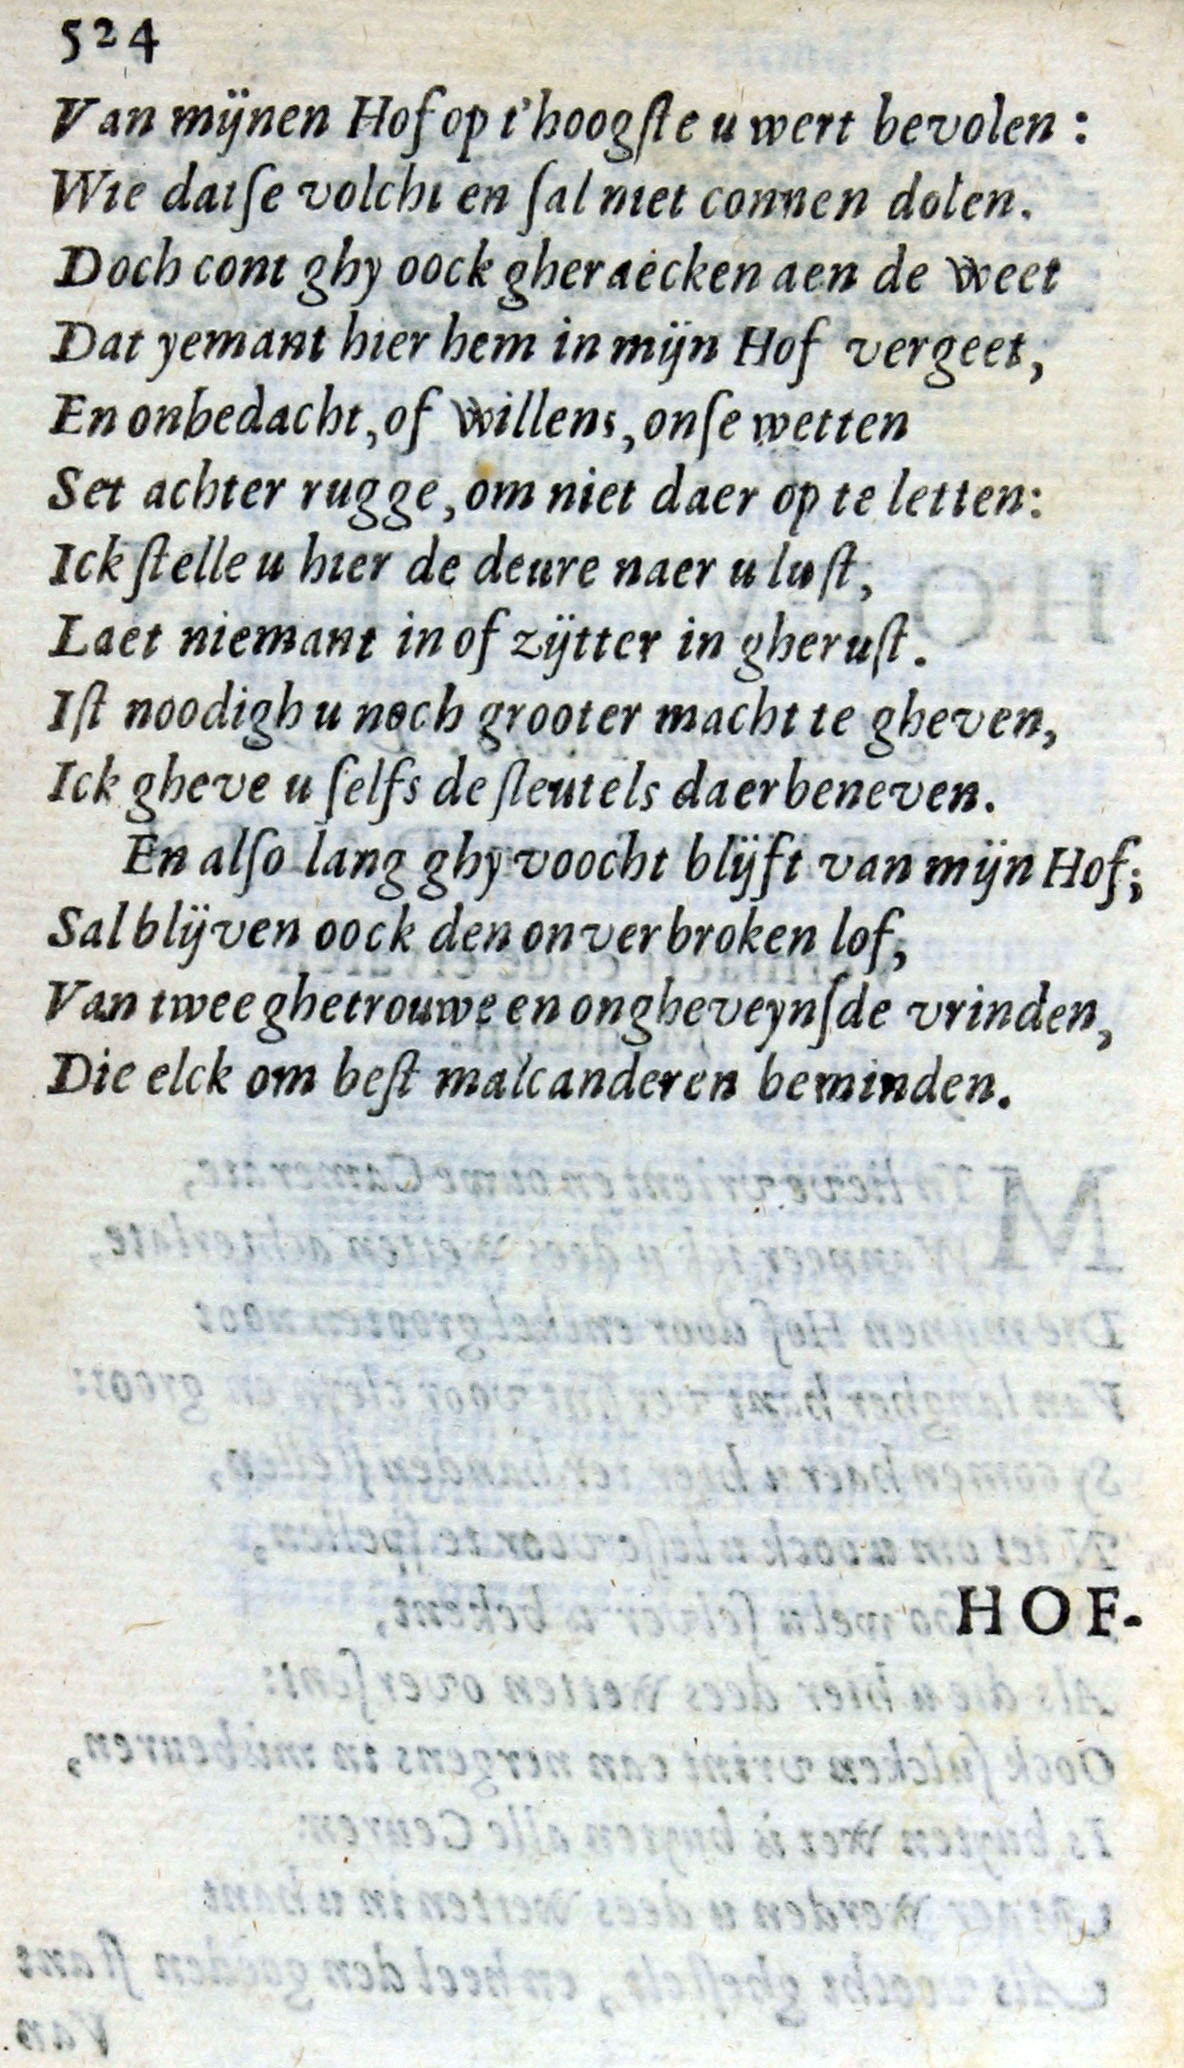 524
Van mijnen Hof op t'hoogſte u wert bevolen :
Wie datſe volcht en ſal niet connen dolen.
Doch cont ghy oock gheraecken aen de weet
Dat yemant hier hem in mijn Hof vergeet,
En onbedacht, of willens, onſe wetten
Set achter rugge, om niet daer op te letten:
Ick ſtelle u hier de deure naer u luſt,
Laet niemant in of zijtter in gheruſt.
Iſt noodigh u noch grooter macht te gheven,
Ick gheve u ſelfs de ſleutels daer beneven.
En alſo lang ghy voocht blijft van mijn Hof;
Sal blijven oock den onverbroken lof,
Van twee ghetrouwe en ongheveynſde vrinden,
Die elck om beſt malcanderen beminden.
HOF-